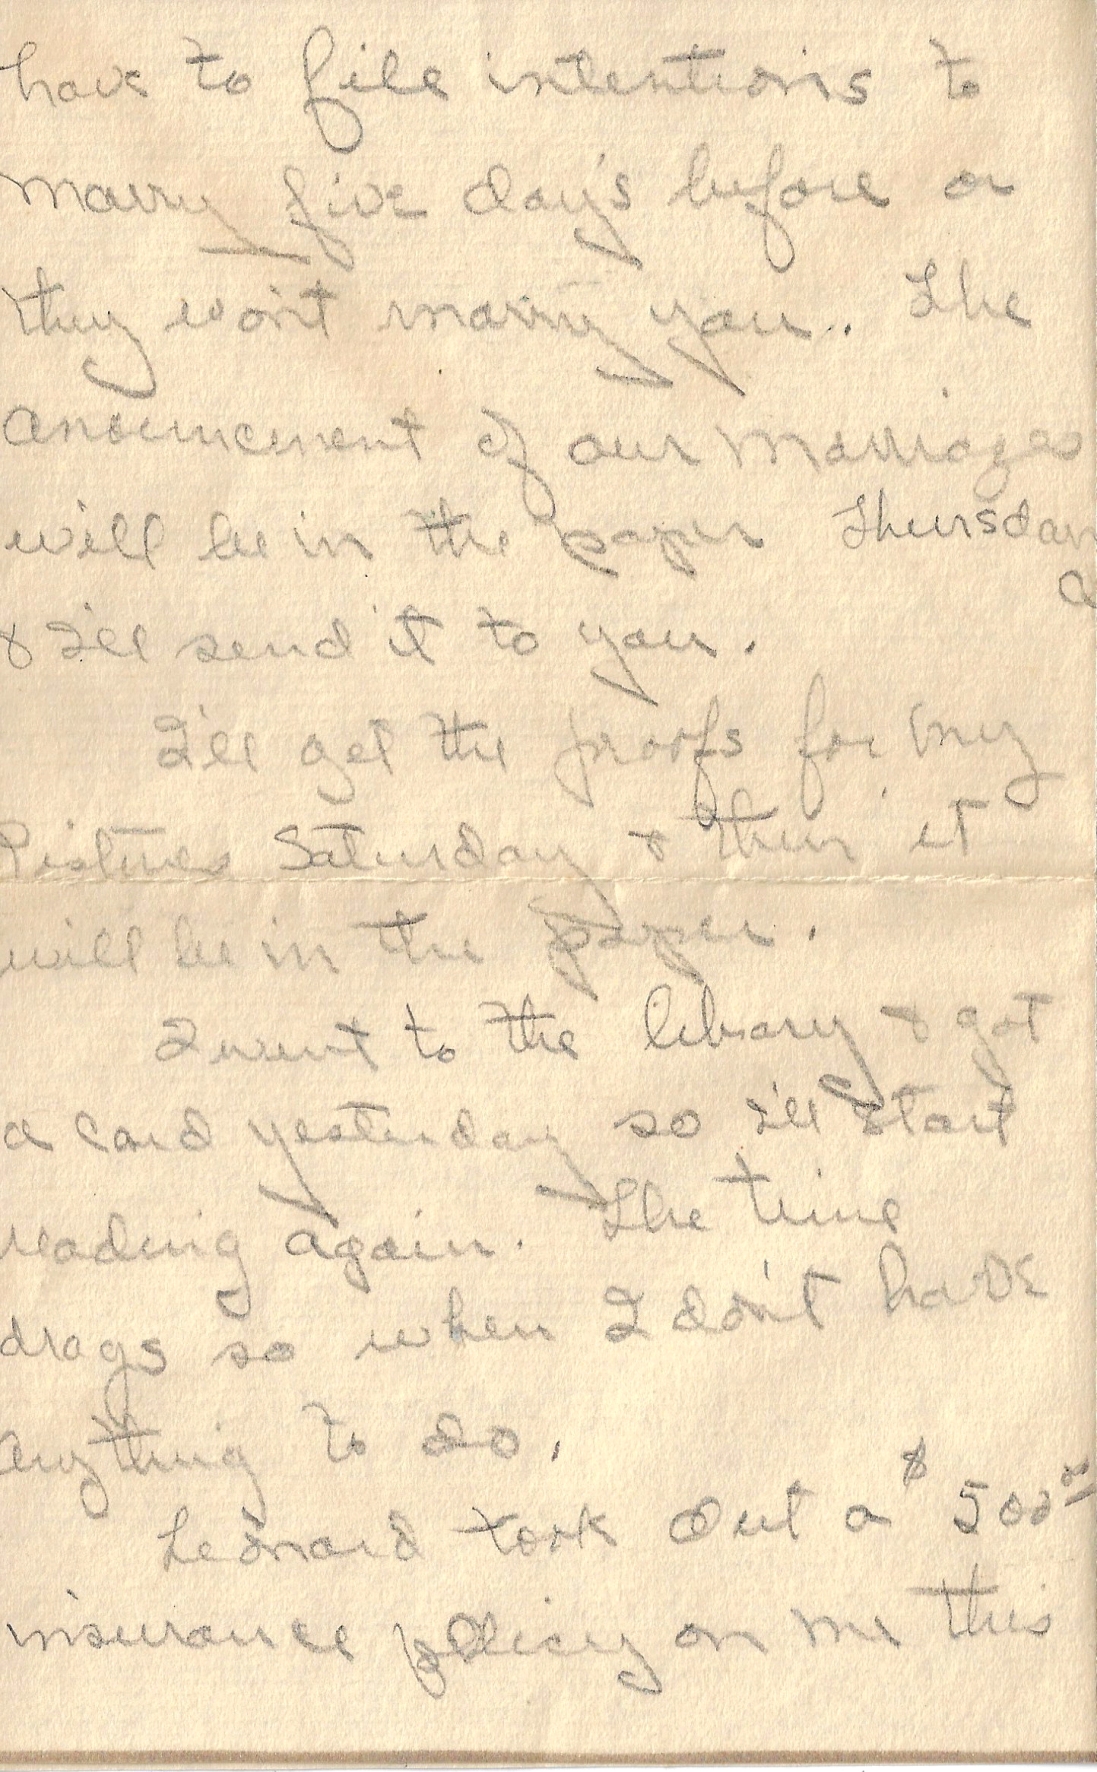 have to file intentions to
marry five day's before or
they won't marry you.. The
anouncement of our marriages
will be in the paper Thursday
& I'll send it to you.
I'll get the proofs for my
Pictures Saturday & then it
will be in the paper.
I went to the library & got
a card yesterday so I'll start
reading again. The time
drags so when I don't have
anything to do.
Leonard took out a $500⁰⁰
insurance policy on me this